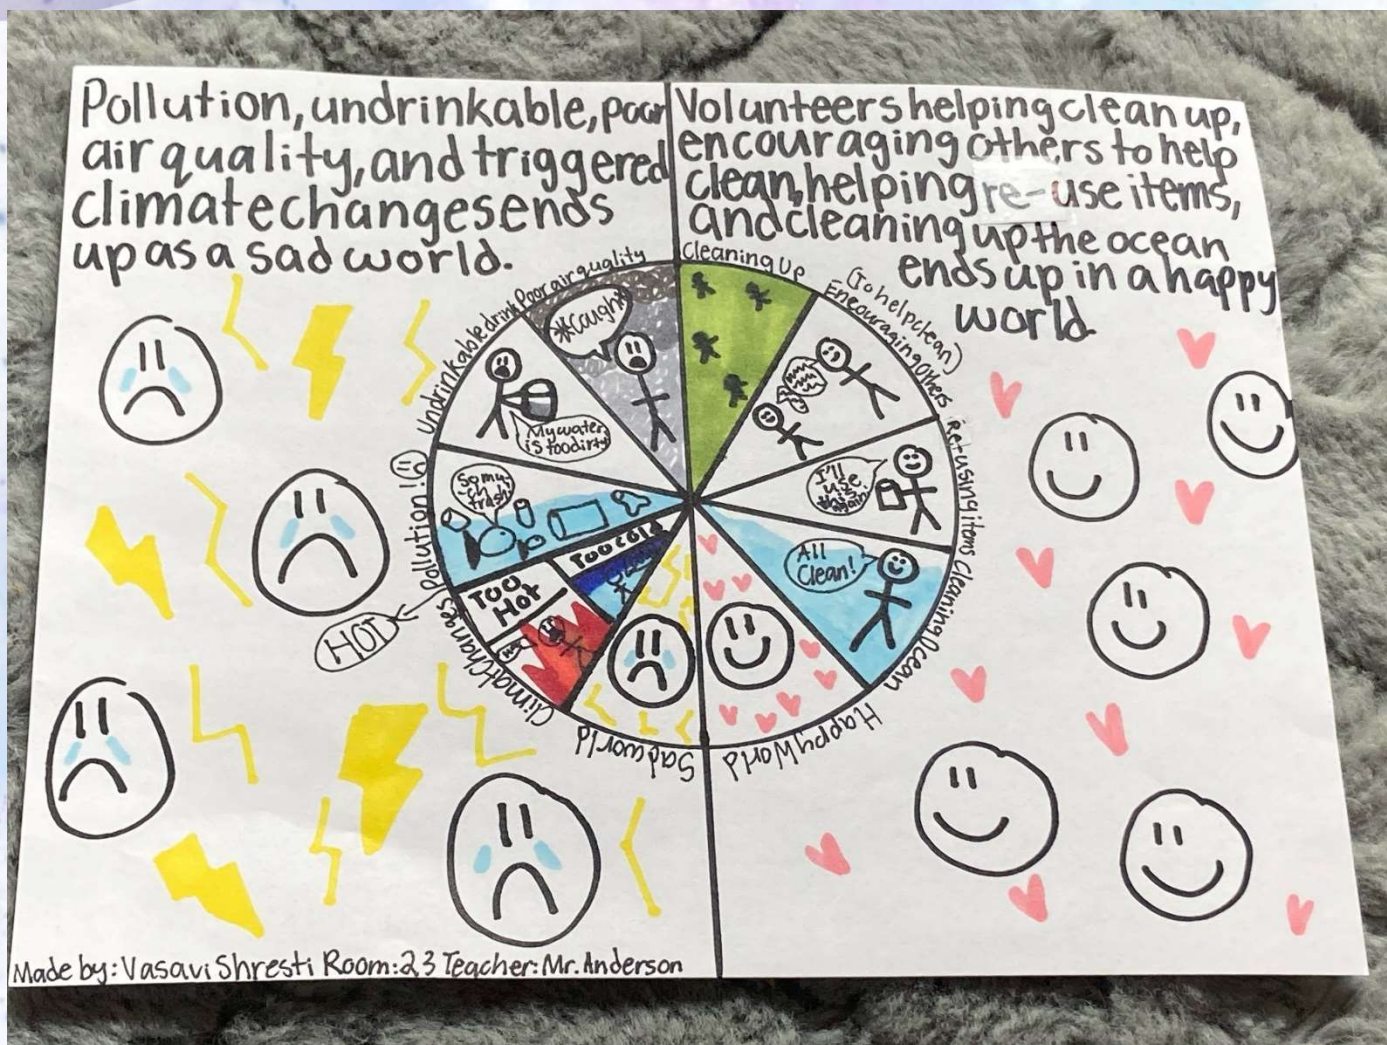 Pollution, undrinkable, poor
air quality, and triggered
climate changes ends
up as a sad world.
Volunteers helping clean up,
encouraging others to help
clean, helping re-use items,
and cleaning up the ocean
ends up in a happy
world.
Poor air quality
*Cough*
Undrinkable drink
My water
is too dirty
Pollution!
So mu
-ch
trash!
HOT
Climat Changes
Too Cold
Too
Hot
Sad world
Cleaning Up
(To help clean)
Encouraging Others
Refusing items
I'll
use
this
again
Cleaning Ocean
All
Clean!
Happy World
Made by: Vasavi Shresti Room: 23 Teacher: Mr. Anderson